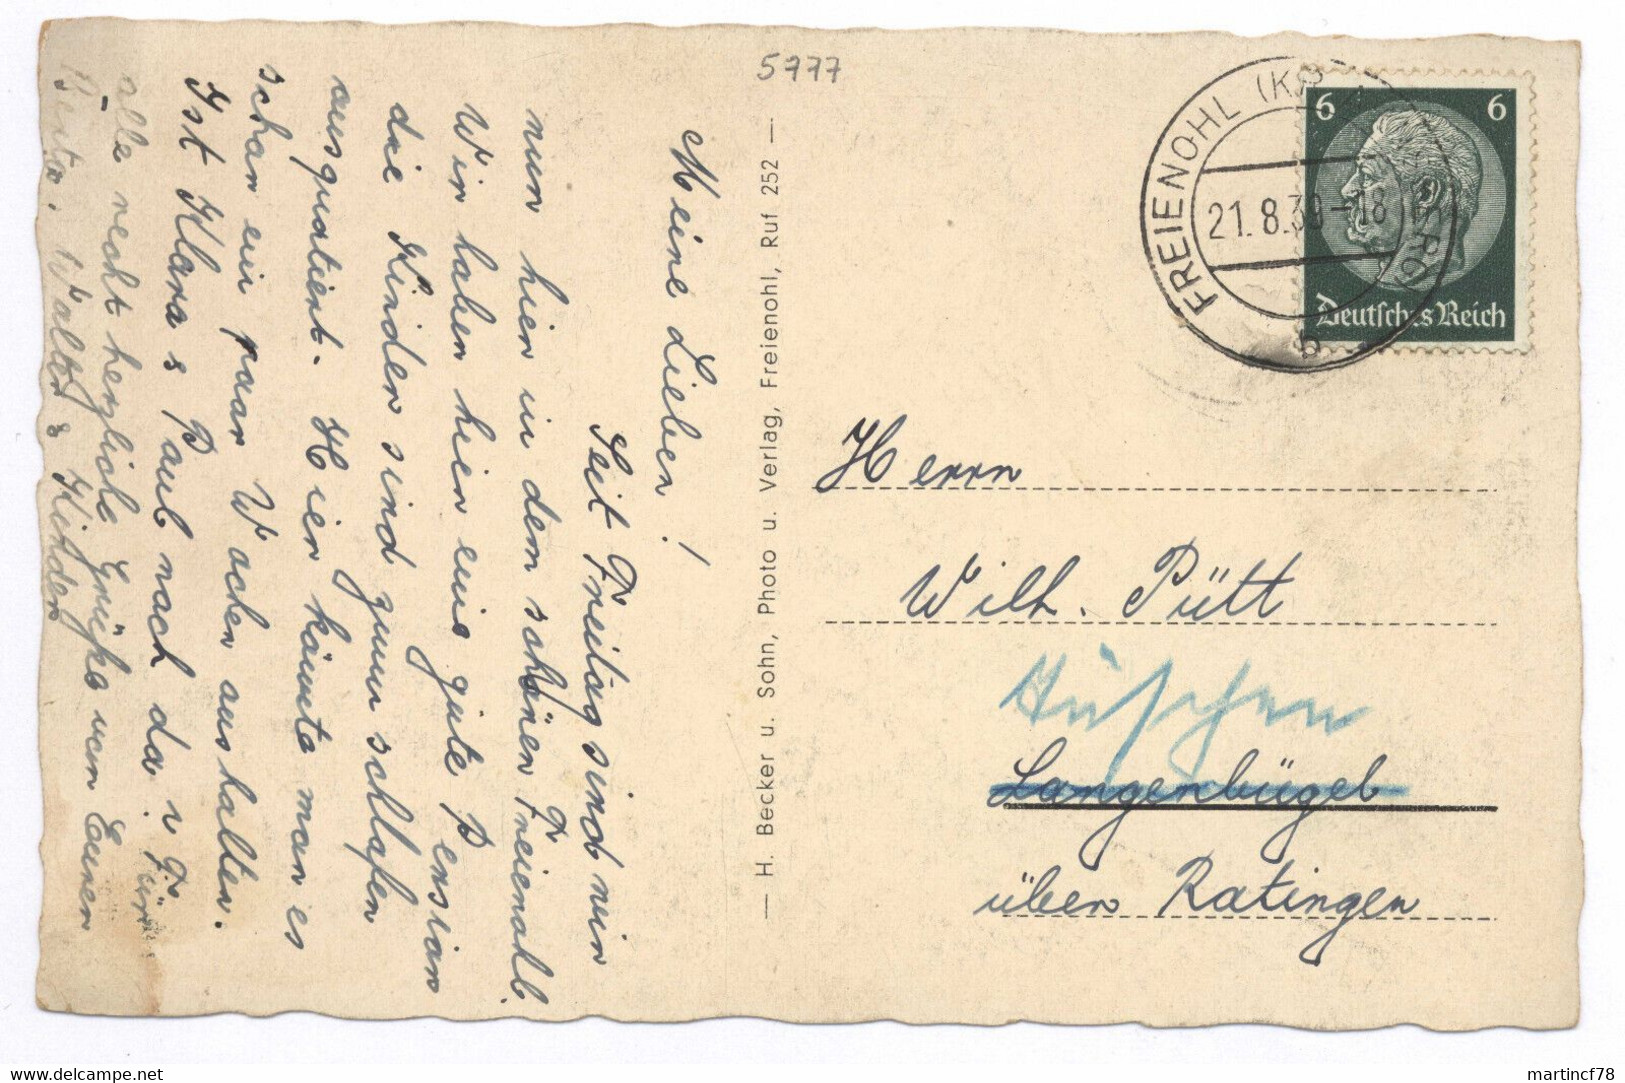 5777
Meine Lieben!
Seit Freitag sind wir
nun hier in dem schönen Freienohl.
Wir haben hier eine gute Pension
die Kinder sind zum schlafen
ausquatiert. Hier könnte man es
schon ein paar Wochen aushalten.
Ist Klara s Paul nach da? Für
alle recht herzliche Grüße von Euren
Walter & Kinder
— H. Becker u. Sohn, Photo u. Verlag, Freienohl, Ruf 252 —
FREIENOHL
21.8.39-18
b
6 6
Deutsches Reich
Herrn
Wilh. Pütt
Hüschen
Langenbügel
über Ratingen
martincf78